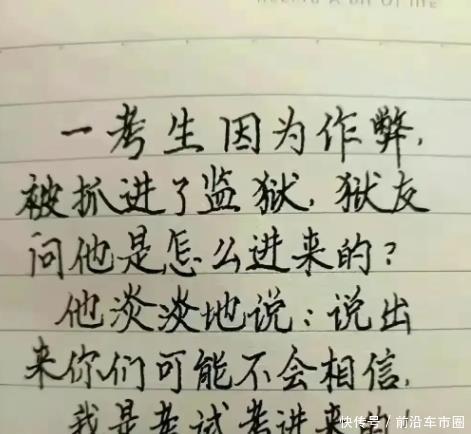 一考生因为作弊,
被抓进了监狱,狱友
问他是怎么进来的?
他淡淡地说:说出
来你们可能不会相信,
我是考试考进来的!
快传号/前沿车市圈